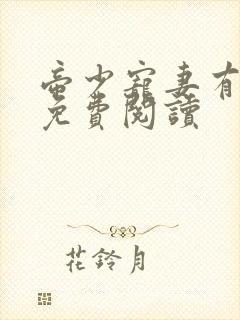 帝少寵妻有
免費閱讀
花鈴月